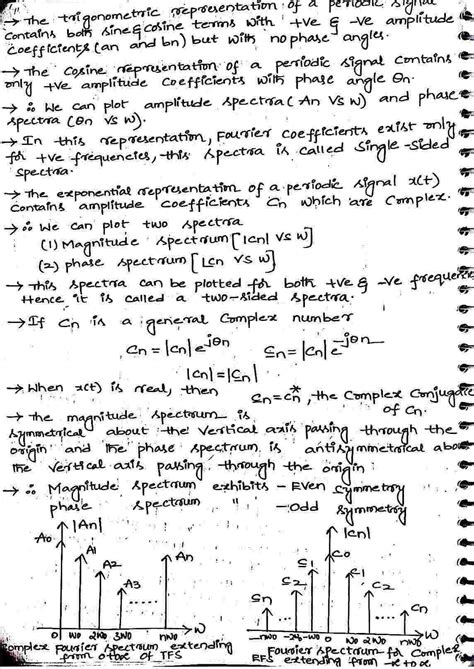 → The trigonometric representation of a periodic signal
contains both sine & cosine terms with +ve & -ve amplitude
coefficients (an and bn) but with no phase angles.
→ The cosine representation of a periodic signal contains
only +ve amplitude coefficients with phase angle θn.
→ ∴ We can plot amplitude spectra (An vs w) and phase
spectra (θn vs w).
→ In this representation, Fourier coefficients exist only
for +ve frequencies, this spectra is called Single-sided
spectra.
→ The exponential representation of a periodic signal x(t)
contains amplitude coefficients Cn which are complex.
→ ∴ We can plot two spectra
(1) Magnitude spectrum [|Cn| vs w]
(2) phase spectrum [∠Cn vs w]
→ This spectra can be plotted for both +ve & -ve
Hence it is called a two-sided spectra.
→ If Cn is a general complex number
Cn = |Cn| e^jθn C-n = |Cn| e^-jθn
|Cn| = |C-n|
→ When x(t) is real, then C-n = Cn*, the Complex
of Cn.
→ The magnitude spectrum is
symmetrical about the vertical axis passing through the
origin and the phase spectrum is antisymmetrical
the vertical axis passing through the origin.
→ ∴ Magnitude spectrum exhibits - Even Symmetry
phase spectrum " - odd symmetry
|An| |Cn|
A0 A1 A2 A3 An
C-n C-2 C-1 C0 C1 C2 Cn
0 w0 2w0 3w0 nw0 w
-nw0 -2w0 -w0 0 w0 2w0 nw0 w
Complex Fourier spectrum extending
from 0 to ∞ of TFS
Fourier spectrum for Complex
EFS extending from -∞ to ∞